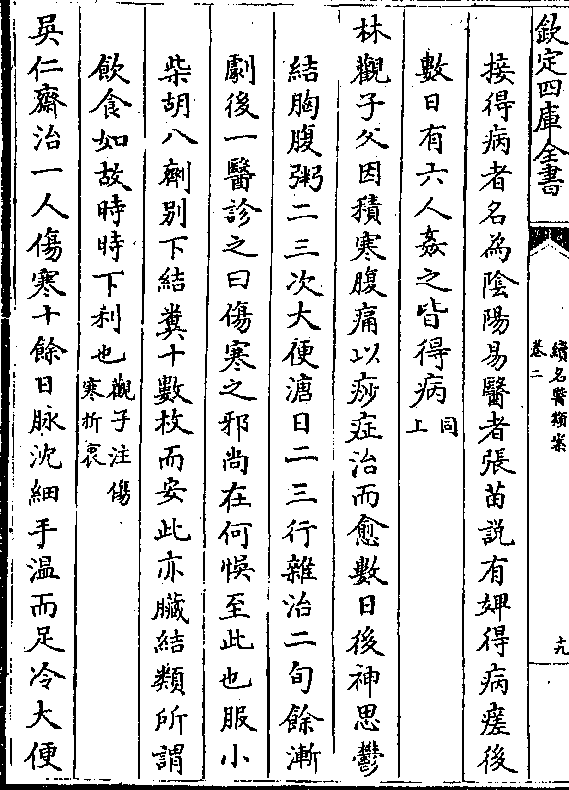 欽定四庫全書
續名醫類案
卷二
十九
接得病者名為陰陽易醫者張苗説有婢得病瘥後
數日有六人姦之皆得病同上
林觀子父因積寒腹痛以痧症治而愈數日後神思鬱
結胸腹粥二三次大便溏日二三行雜治二旬餘漸
劇後一醫診之曰傷寒之邪尚在何悞至此也服小
柴胡八劑别下結糞十數枚而安此亦臟結類所謂
飲食如故時時下利也觀子注傷
寒折衷
吳仁齋治一人傷寒十餘日脉沈細手温而足冷大便